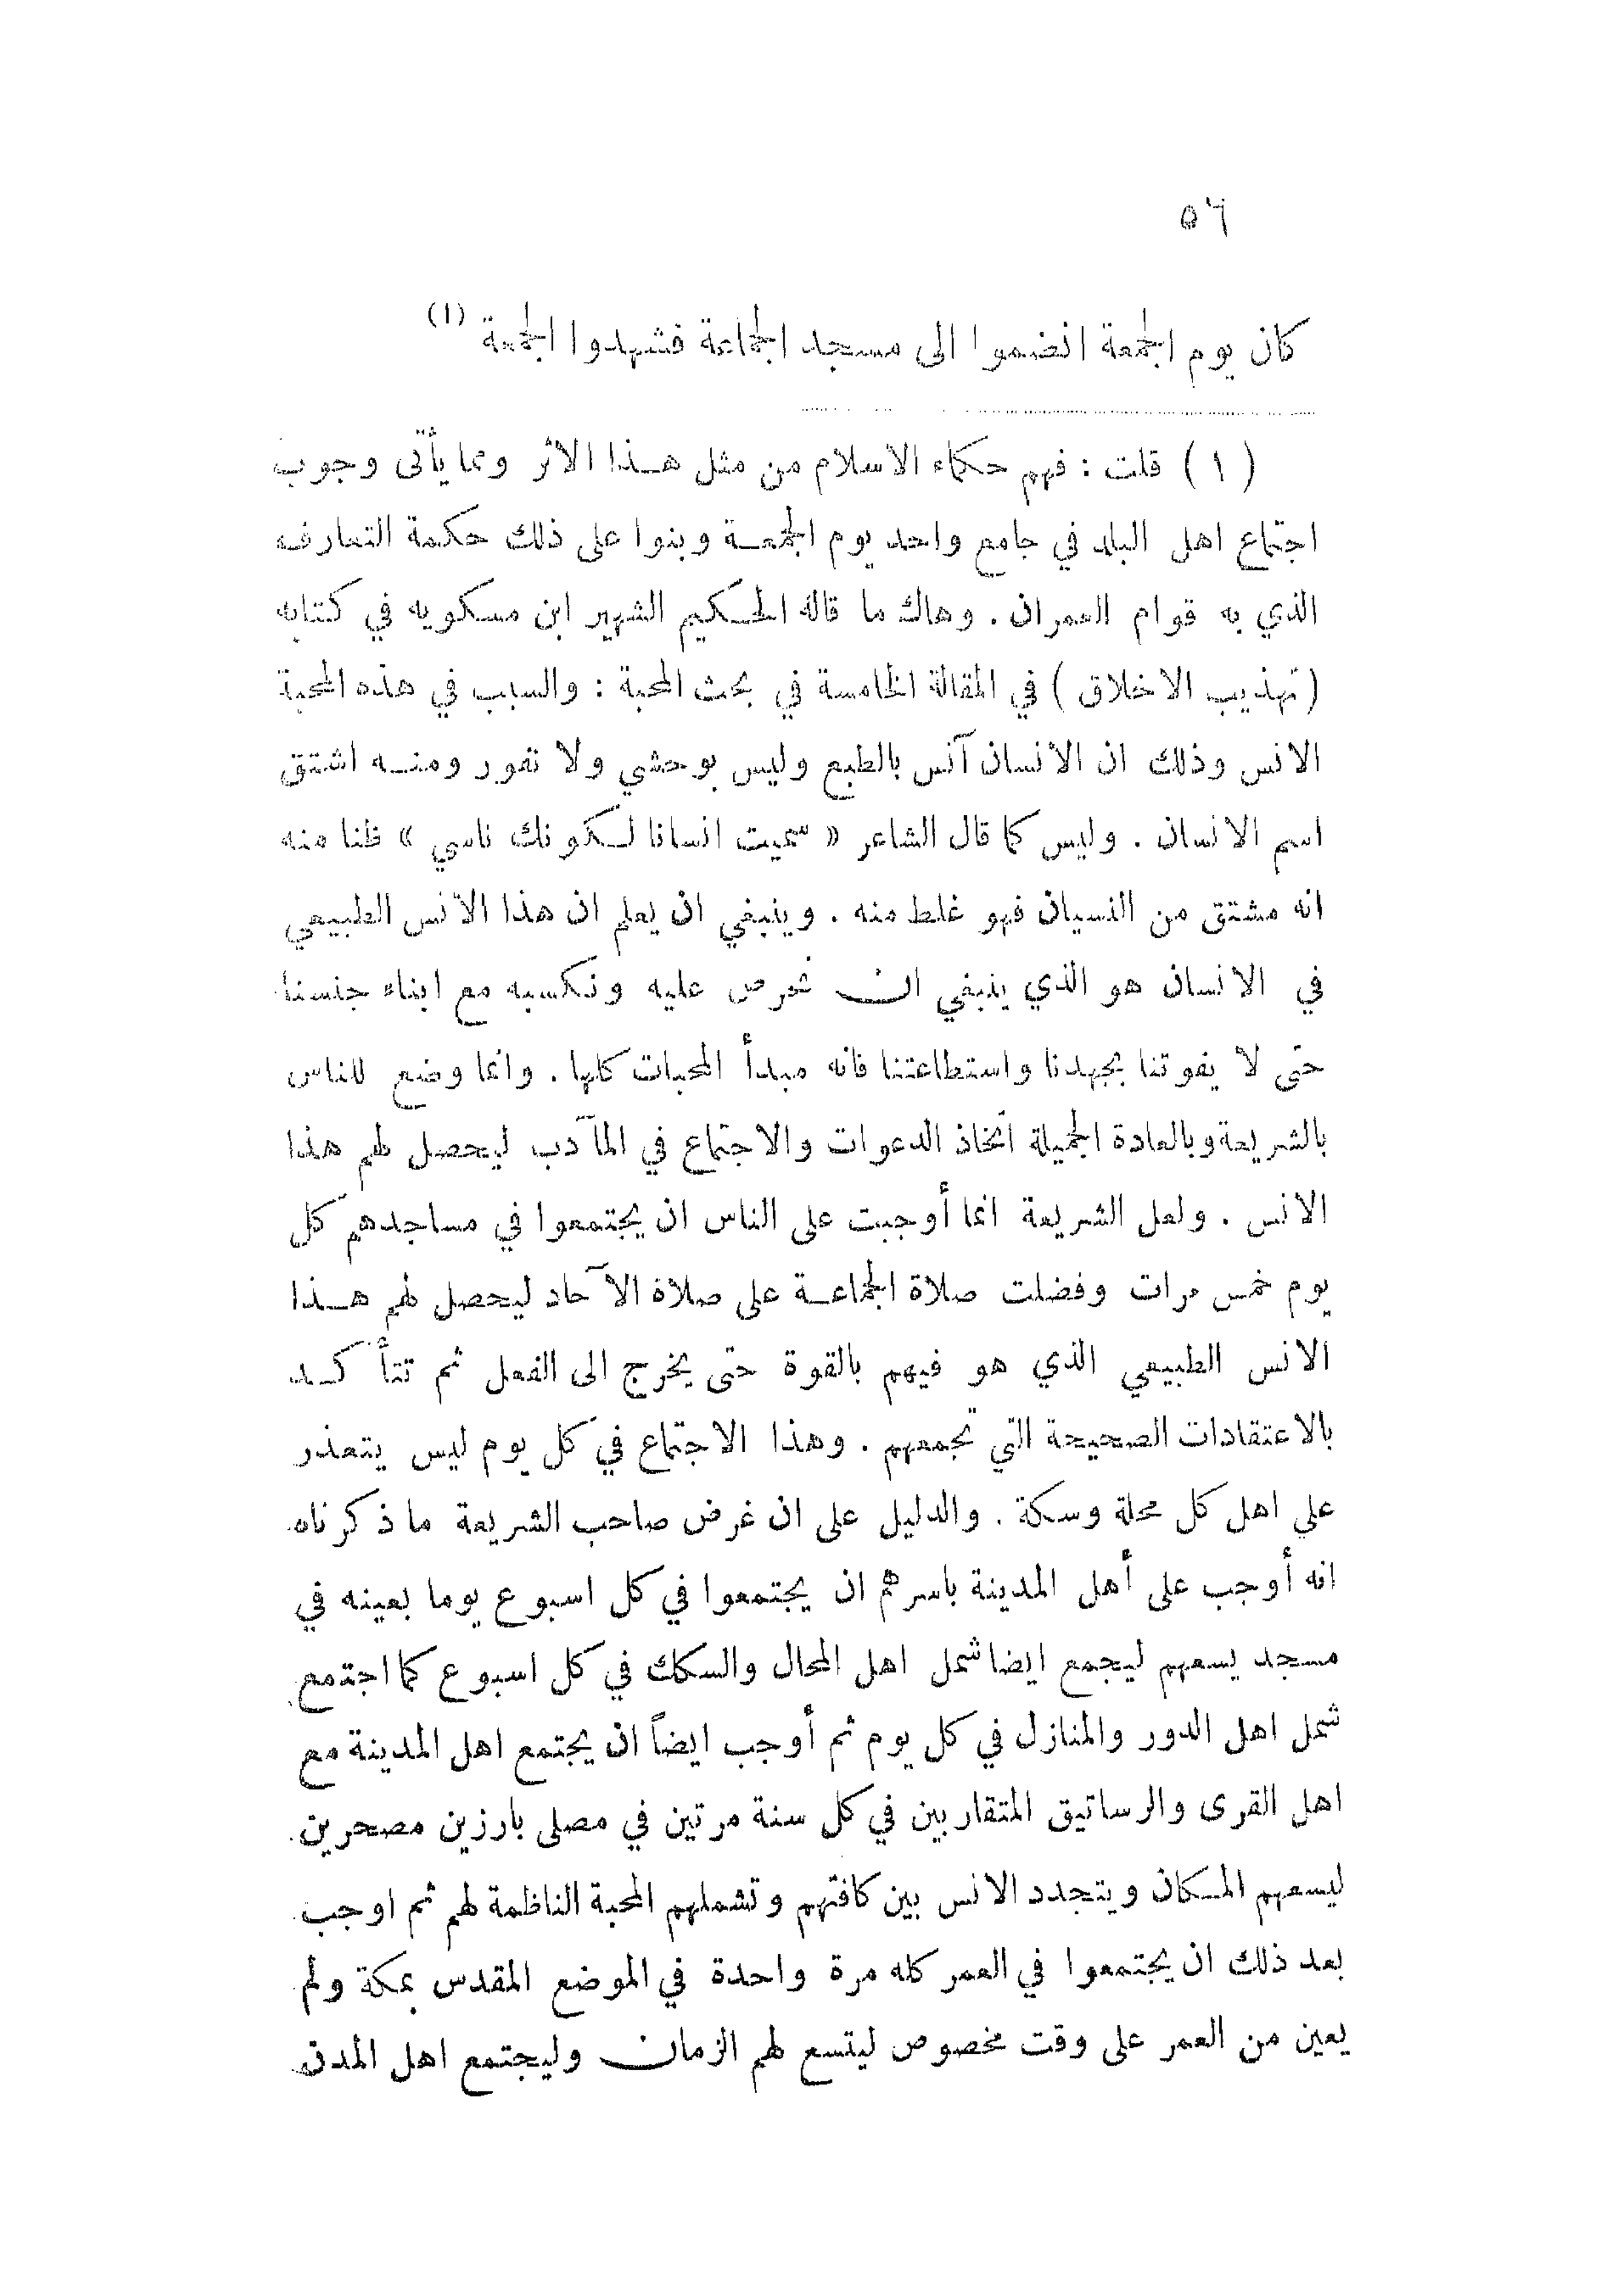 ٥٦
كان يوم الجمعة انضموا الى مسجد الجماعة فشهدوا الجمعة (١)
(١) قلت : فهم حكماء الاسلام من مثل هذا الاثر ومما يأتى وجوب
اجتماع اهل البلد في جامع واحد يوم الجمعة وبنوا على ذلك حكمة التعارف
الذي به قوام العمران . وهاك ما قاله الحكيم الشهير ابن مسكويه في كتابه
(تهذيب الاخلاق) في المقالة الخامسة في بحث المحبة : والسبب في هذه المحبة
الانس وذلك ان الانسان آنس بالطبع وليس بوحشي ولا نفور ومنه اشتق
اسم الانسان . وليس كما قال الشاعر « سميت انسانا لكونك ناسي » ظنا منه
انه مشتق من النسيان فهو غلط منه . وينبغي ان يعلم ان هذا الأنس الطبيعي
في الانسان هو الذي ينبغي ان نحرص عليه ونكسبه مع ابناء جنسنا
حتى لا يفوتنا بجهدنا واستطاعتنا فانه مبدأ المحبات كلها . وانما وضع للناس
بالشريعة وبالعادة الجميلة اتخاذ الدعوات والاجتماع في المآدب ليحصل لهم هذا
الانس . ولعل الشريعة انما أوجبت على الناس ان يجتمعوا في مساجدهم كل
يوم خمس مرات وفضلت صلاة الجماعة على صلاة الآحاد ليحصل لهم هذا
الانس الطبيعي الذي هو فيهم بالقوة حتى يخرج الى الفعل ثم تتأكد
بالاعتقادات الصحيحة التي تجمعهم . وهذا الاجتماع في كل يوم ليس يتعذر
علي اهل كل محلة وسكة . والدليل على ان غرض صاحب الشريعة ما ذكرناه
انه أوجب على أهل المدينة باسرهم ان يجتمعوا في كل اسبوع يوما بعينه في
مسجد يسعهم ليجمع ايضا شمل اهل المحال والسكك في كل اسبوع كما اجتمع
شمل اهل الدور والمنازل في كل يوم ثم أوجب ايضاً ان يجتمع اهل المدينة مع
اهل القرى والرساتيق المتقاربين في كل سنة مرتين في مصلى بارزين مصحرين
ليسعهم المكان ويتجدد الانس بين كافتهم وتشملهم المحبة الناظمة لهم ثم اوجب
بعد ذلك ان يجتمعوا في العمر كله مرة واحدة في الموضع المقدس بمكة ولم
يعين من العمر على وقت مخصوص ليتسع لهم الزمان وليجتمع اهل المدن